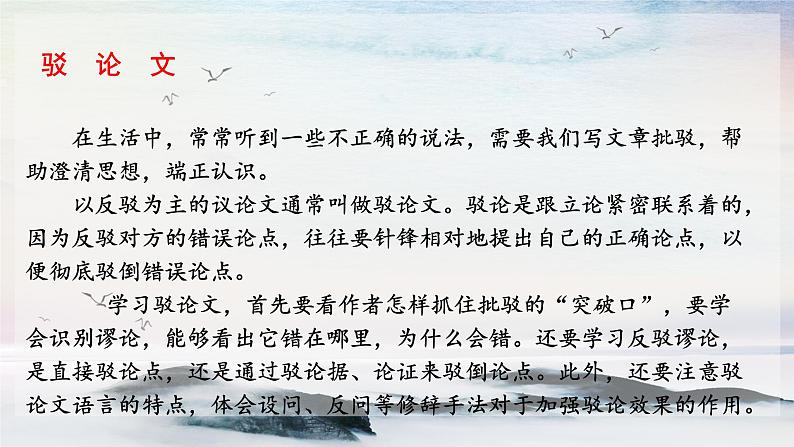 驳 论 文
在生活中，常常听到一些不正确的说法，需要我们写文章批驳，帮
助澄清思想，端正认识。
以反驳为主的议论文通常叫做驳论文。驳论是跟立论紧密联系着的，
因为反驳对方的错误论点，往往要针锋相对地提出自己的正确论点，以
便彻底驳倒错误论点。
学习驳论文，首先要看作者怎样抓住批驳的“突破口”，要学
会识别谬论，能够看出它错在哪里，为什么会错。还要学习反驳谬论，
是直接驳论点，还是通过驳论据、论证来驳倒论点。此外，还要注意驳
论文语言的特点，体会设问、反问等修辞手法对于加强驳论效果的作用。